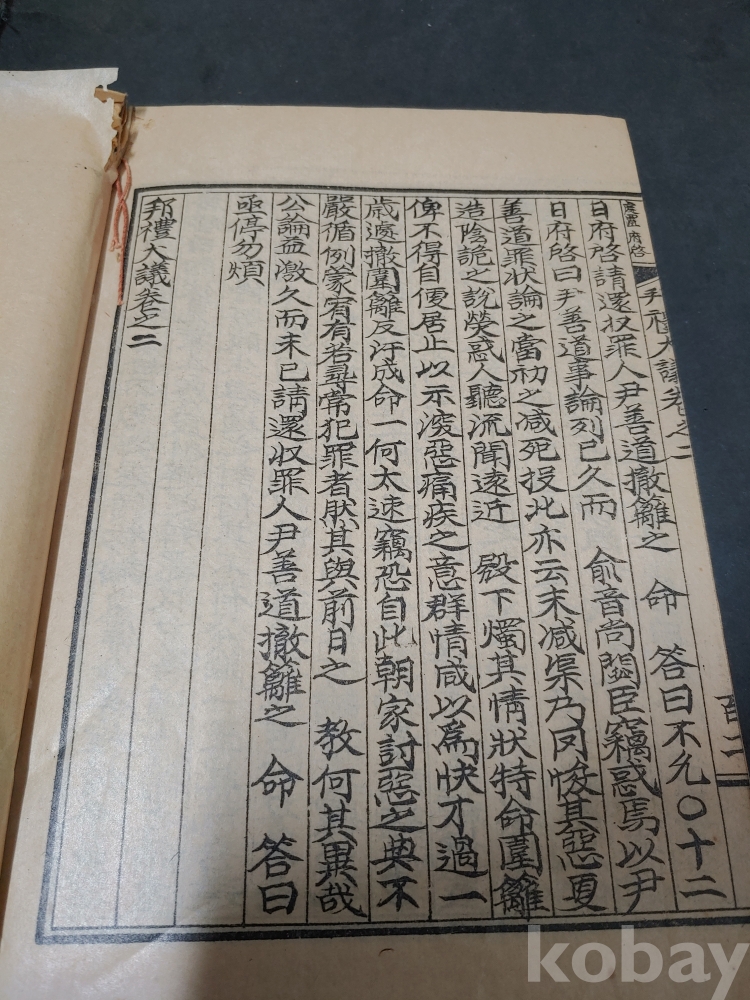 府啓
邦禮大議卷之二
百二
日府啓請還収罪人尹善道撤籬之 命 答曰不允〇十二
日府啓曰尹善道事論列已久而 兪音尚閟臣竊惑焉以尹
善道罪状論之當初之减死投北亦云末减渠乃罔悛其惡更
造陰詭之說熒惑人聽流聞遠近 殿下燭其情狀特命圍籬
俾不得自便居止以示深惡痛疾之意群情咸以爲快才過一
歳遽撤圍籬反汗成命一何太速竊恐自此朝家討惡之典不
嚴循例蒙宥有若尋常犯罪者肰其與前日之 教何其異哉
公論益激久而未已請還収罪人尹善道撤籬之 命 答曰
亟停勿煩
邦禮大議卷之二
kobay